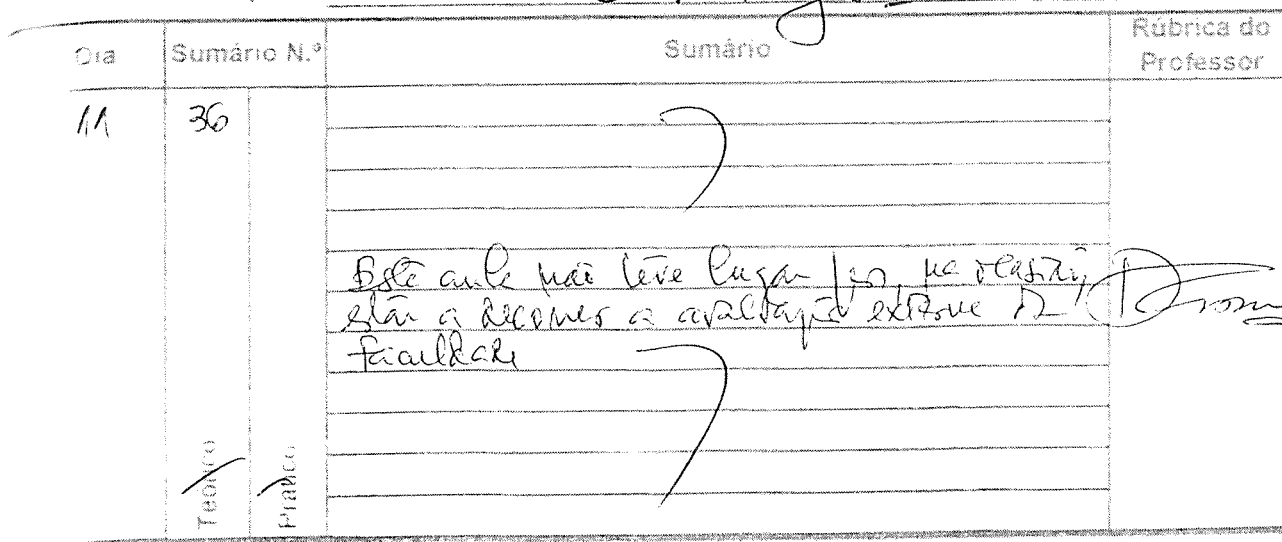 Dia Sumário N.º Sumário Rúbrica do Professor
11 36
Esta aula não teve lugar
estar a decorrer a avaliação externa da
faculdade
Teórico Prático